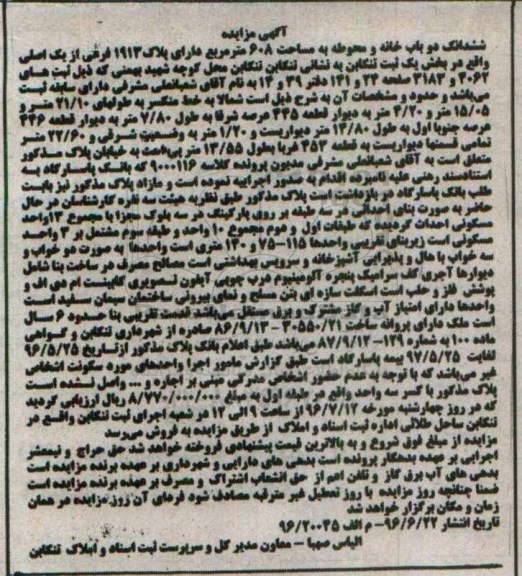 آگهی مزایده
ششدانگ دو باب خانه و محوطه به مساحت ۶۰۸ مترمربع دارای پلاک ۱۹۱۳ فرعی از یک اصلی
واقع در بخش یک ثبت تنکابن به نشانی تنکابن تنکابن محل کوچه شهید بهمنی که ذیل ثبت های
۳۰۶۲ و ۳۱۸۳ صفحه ۲۴ و ۱۳۱ دفتر ۳۹ و ۱۲ به نام آقای شعبانعلی مشرفی دارای سابقه ثبت
میباشد و حدود و مشخصات آن به شرح ذیل است شمالا به خط منکسر به طولهای ۲۱/۱۰ متر و
۱۵/۰۵ متر و ۴/۲۰ متر به دیوار قطعه ۴۴۵ عرصه شرقا به طول ۷/۸۰ متر به دیوار قطعه ۴۴۶
عرصه جنوبا اول به طول ۱۳/۸۰ متر دیواریست و ۱/۲۰ متر به وضعیت شرقی و ۲۲/۶۰ متر
تمامی قسمتها دیواریست به قطعه ۴۵۳ غربا بطول ۱۳/۵۵ متر پی است به خیابان پلاک مذکور
متعلق است به آقای شعبانعلی مشرفی مدیون پرونده کلاسه ۹۰۰۰۱۱۶ که بانک پاسارگاد به
استناد سند رهنی علیه نامبرده اقدام به صدور اجراییه نموده است و مازاد پلاک مذکور نیز بابت
طلب بانک پاسارگاد در بازداشت است پلاک مذکور طبق نظریه هیئت سه نفره کارشناسان در حال
حاضر به صورت بنای احداثی در سه طبقه بر روی پارکینگ در سه بلوک مجزا با مجموع ۱۳واحد
مسکونی احداث گردیده که طبقات اول و دوم مجموع ۱۰ واحد و طبقه سوم مشتمل بر ۳ واحد
مسکونی است زیربنای تقریبی واحدها ۱۱۵-۷۵ و ۱۳۰ متری است واحدها به صورت دو خواب و
سه خواب با هال و پذیرایی آشپزخانه و سرویس بهداشتی است مصالح مصرف در ساخت بنا شامل
دیوارها آجری کف سرامیک پنجره آلومینیوم درب چوبی آیفون تصویری کابینت ام دی اف و
پوشش فلز و حلب است اسکلت سازه ای بتن مسلح و نمای بیرونی ساختمان سیمان سفید است
واحدها دارای امتیاز آب و گاز مشترک و برق مستقل می‌باشد قدمت تقریبی بنا حدود ۶ سال
است ملک دارای پروانه ساخت ۳۰۵۵۰/۲۱ – ۸۶/۹/۱۳ صادره از شهرداری تنکابن و گواهی
ماده ۱۰۰ به شماره ۱۲۹- ۸۷/۹/۱۲ می‌باشد طبق اعلام بانک پلاک مذکور از تاریخ ۹۶/۵/۲۵
لغایت ۹۷/۵/۲۵ بیمه پاسارگاد است طبق گزارش مامور اجرا واحدهای مورد سکونت اشخاص
غیر می‌باشد که با توجه به عدم حضور اشخاص مدرکی مبنی بر اجاره و ... واصل نشده است
پلاک مذکور با کسر سه واحد واقع در طبقه اول به مبلغ ۸/۷۷۰/۰۰۰/۰۰۰ ریال ارزیابی گردید
که در روز چهارشنبه مورخه ۹۶/۷/۱۲ از ساعت ۹ الی ۱۲ در شعبه اجرای ثبت تنکابن واقع در
تنکابن ساحل طلائی اداره ثبت اسناد و املاک از طریق مزایده به فروش می‌رسد
مزایده از مبلغ فوق شروع و به بالاترین قیمت پیشنهادی فروخته خواهد شد حق حراج و نیمعشر
اجرایی بر عهده بدهکار پرونده است بدهی های دارایی و شهرداری بر عهده برنده مزایده است
بدهی های آب برق گاز و تلفن اعم از حق انشعاب اشتراک و مصرف بر عهده برنده مزایده است
ضمنا چنانچه روز مزایده با روز تعطیل غیر مترقبه مصادف شود فردای آن روز مزایده در همان
زمان و مکان برگزار خواهد شد
تاریخ انتشار ۹۶/۶/۲۲- م الف ۹۶/۲۰۰۳۵
الیاس صهبا – معاون مدیر کل و سرپرست ثبت اسناد و املاک تنکابن